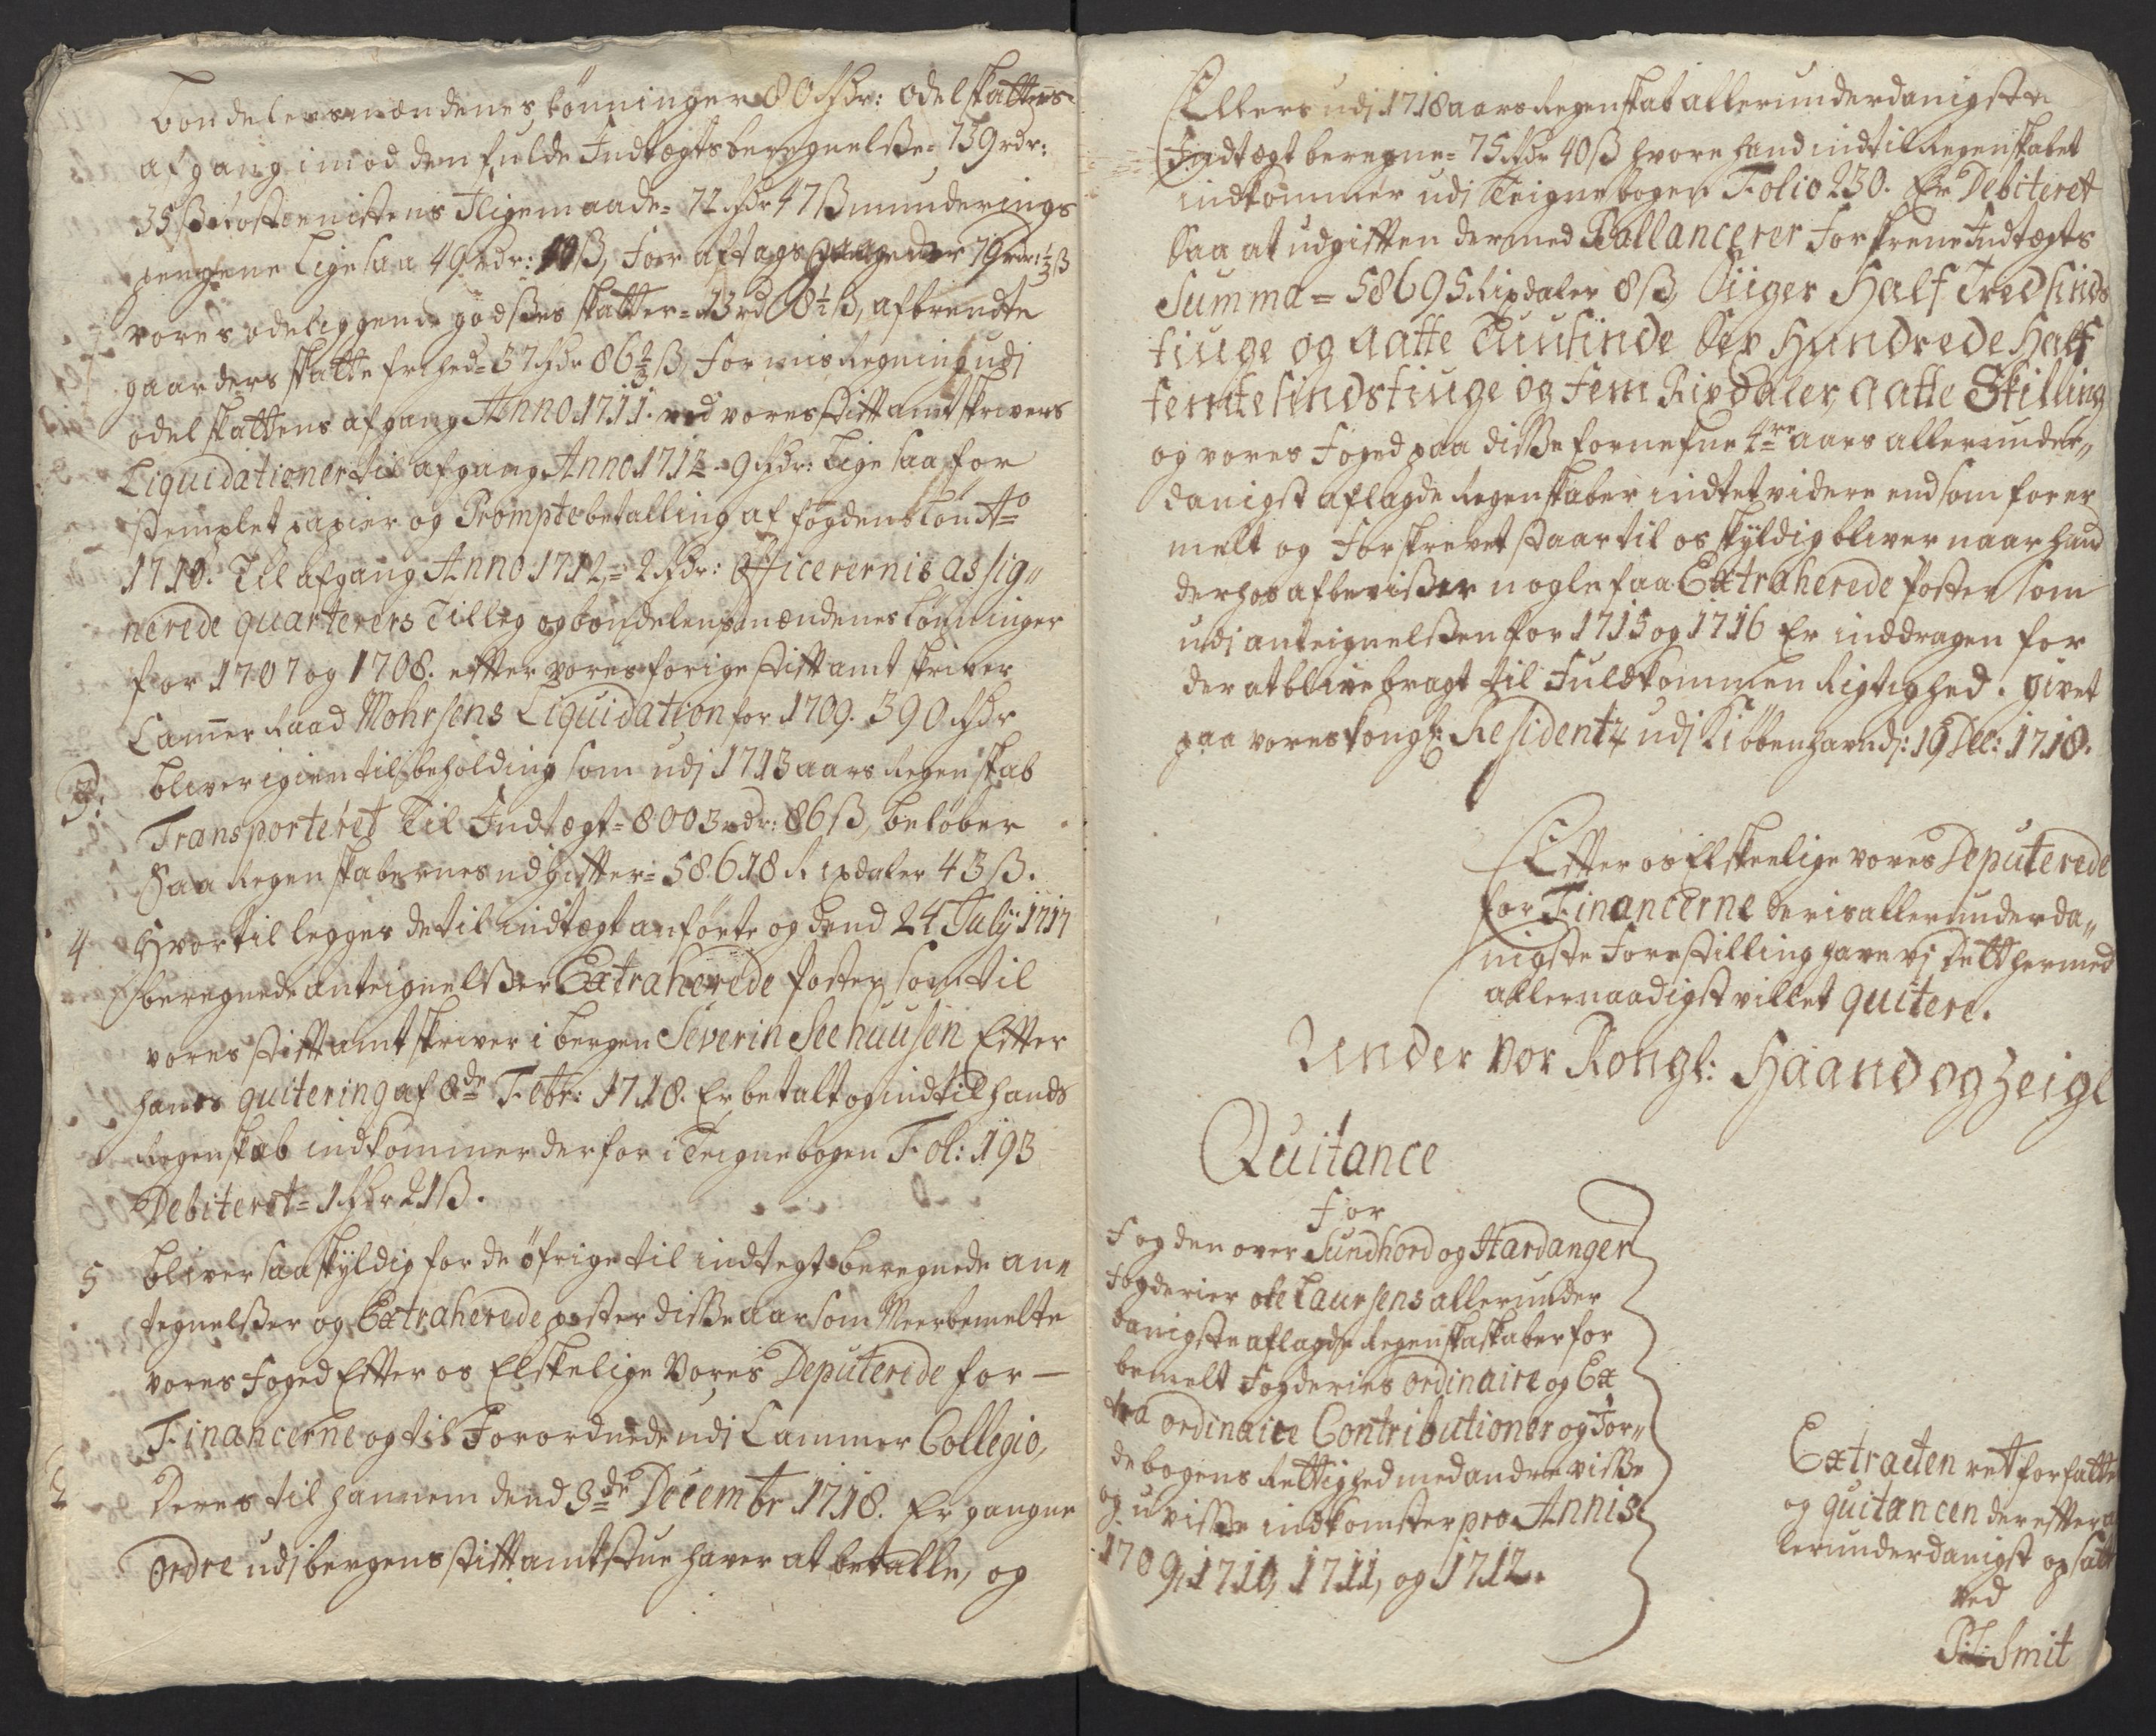 bondelensmændenes lönninger 80 Rdr: odelskattens
afgang imod den fulde Indtægts beregnelsse= 139 rdr:
35 ß Proviantskattens Iligemaade= 72 Rdr 47 ß munderings
pengene lige saa 49 rdr: 10 ß, for aftags 79 rdr: ⅓ ß
vores ödeliggende godsses skatter= 13 rd 8½ ß, afbrendte
gaarders skatte frihed= 37 Rdr 86⅔ ß, for misregning udi
odelskattens afgang Anno 1711. ved vores stiftamtskrivers
Liquidationer til afgang Anno 1712 - 9 Rdr: lige saa for
stemplet papier og Prompte betalling af fogdens lön Ao
1710. Til afgang Anno 1712,= 2 Rdr: Officerernis assig„
nerede quarterers Tilleg og bondelensmændenes lönninger
for 1707 og 1708. efter vores forige stiftamtskriver
Camer Raad Mohrsens Liquidation for 1709. 390 Rdr
3: bliver igien til beholding som udi 1713 aars Regenskab
Transporteret Til Indtægt= 8003 rdr: 86 ß, belöber
Saa Regenskabernes udgifter= 58618 Rixdaler 43 ß.
4 Hvortil legges de til indtægt anförte og dend 24 July 1717
beregnede anteignelsser Extraherede Poster som til
vores stiftamtskriver i bergen Severin Seehuusen Efter
hans quitering af 8de Febr: 1718. Er betalt og indtil hands
Regenskab indkommer derfor i Teignebogen Fol: 193
Debiteret= 1 Rdr 21 ß.
5 bliver saa skyldig for de öfrige til indtegt beregnede an„
tegnelsser og Extraherede poster disse aar som Meerbemelte
vores foged Efter os Elskelige Vores Deputerede for —
Financerne og til Forordnede udi Cammer Collegio,
Deres til hannem dend 3de Decembr 1718. Er gangne
ordre udi bergens stiftamtstue haver at betalle, og
Ellers udi 1718 aars Regenskab allerunderdanigste
Indtægt beregne= 75 Rdr 40 ß hvore hand indtil Regenskabet
indkommer udi Teignebogen Folio 230. Er Debiteret
Saa at udgiften dermed Ballancerer Forskrevne Indtægts
Summa= 58695 Rixdaler 8 ß, Siiger Half Tredsinds
tiuge og aatte Tuusinde Sex Hundrede Half
femtesindstiuge og fem Rixdaler, aatte Skilling
og vores Foged paa disse fornefne 4re aars allerunder„
danigst aflagde Regenskaber indtet videre end som for er
melt og Forskrevet staar til os skyldig bliver naar hand
derhos afbevisser nogle faa Extraherede Poster som
udi anteignelssen for 1715 og 1716 Er inddragen for
der at blive bragt til Fuldkommen Rigtighed. givet
paa vores kongl: Residentz udi Kiöbenhavn d: 19 Dec: 1718.
Efter os Elskelige vores Deputerede
for Financerne deris allerunderda„
nigste Forestilling have vi dett hermed
allernaadigst villet quitere.
Under vor Kongl: Haand og Zeigl
Quitance
For
Fogden over Sundhord og Hardanger
Fogderier ole Laursens allerunder
danigste aflagde Regenskaskaber for
bemelt Fogderies ordinaire og Ex
tra ordinaire Contributioner og Jor„
debogens Rettighed med andre visse
og uvisse indkomster pro Annis
1709, 1710, 1711, og 1712.
Extracten ret forfatte
og quitancen derefter a
lerunderdanigst opsatt
ved
Smit